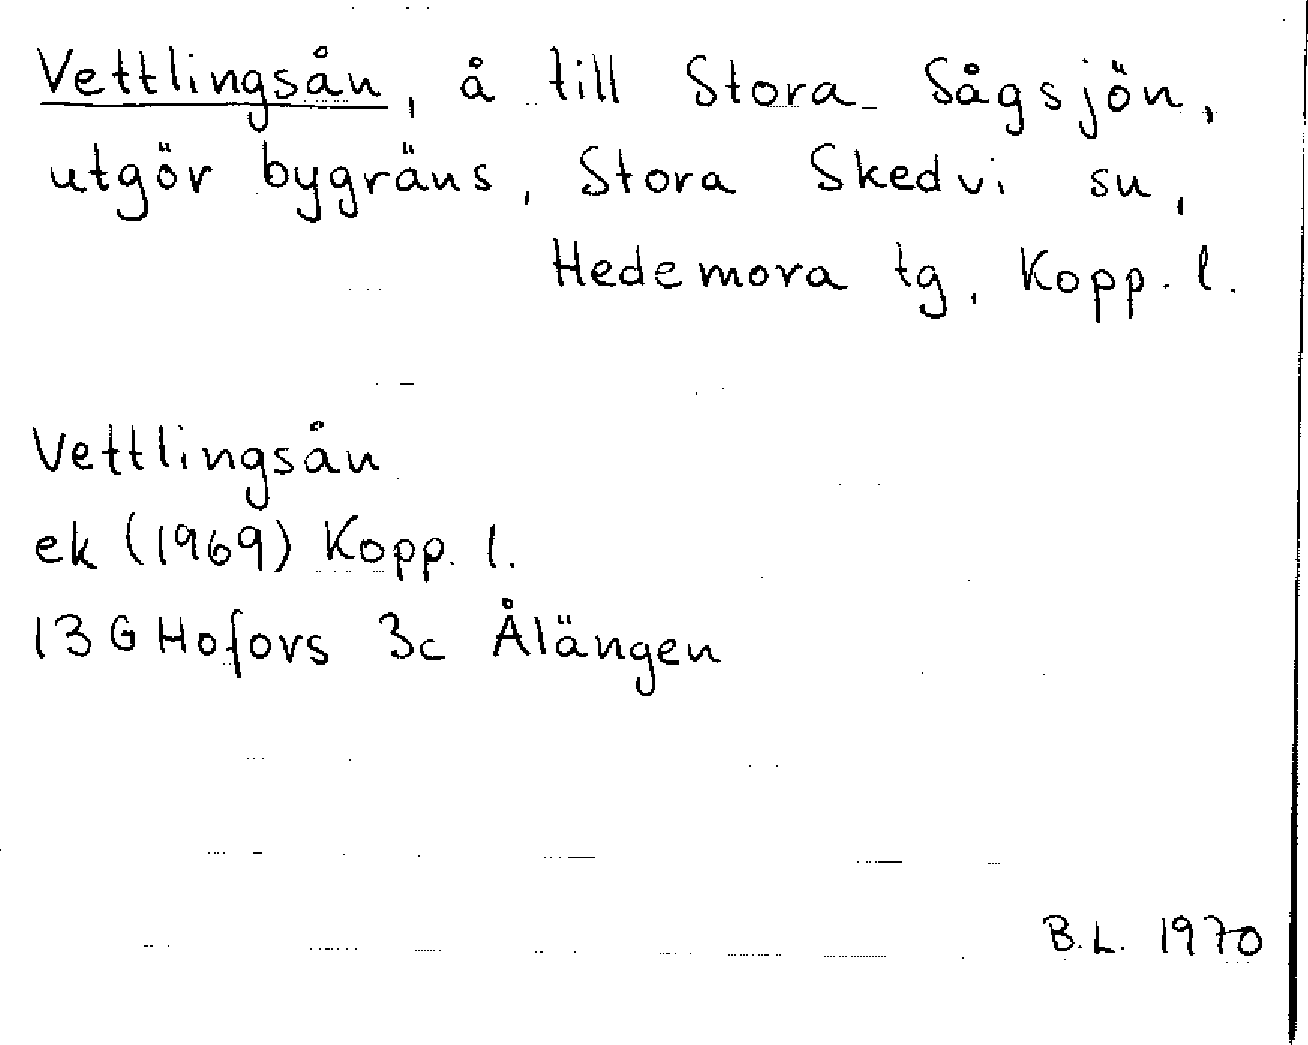 Vettlingsån, å till Stora Sågsjön,
utgör bygräns, Stora Skedvi sn,
Hedemora tg, Kopp. l.
Vettlingsån
ek (1969) Kopp. l.
13 G Hofors 3c Ålängen
B.L. 1970